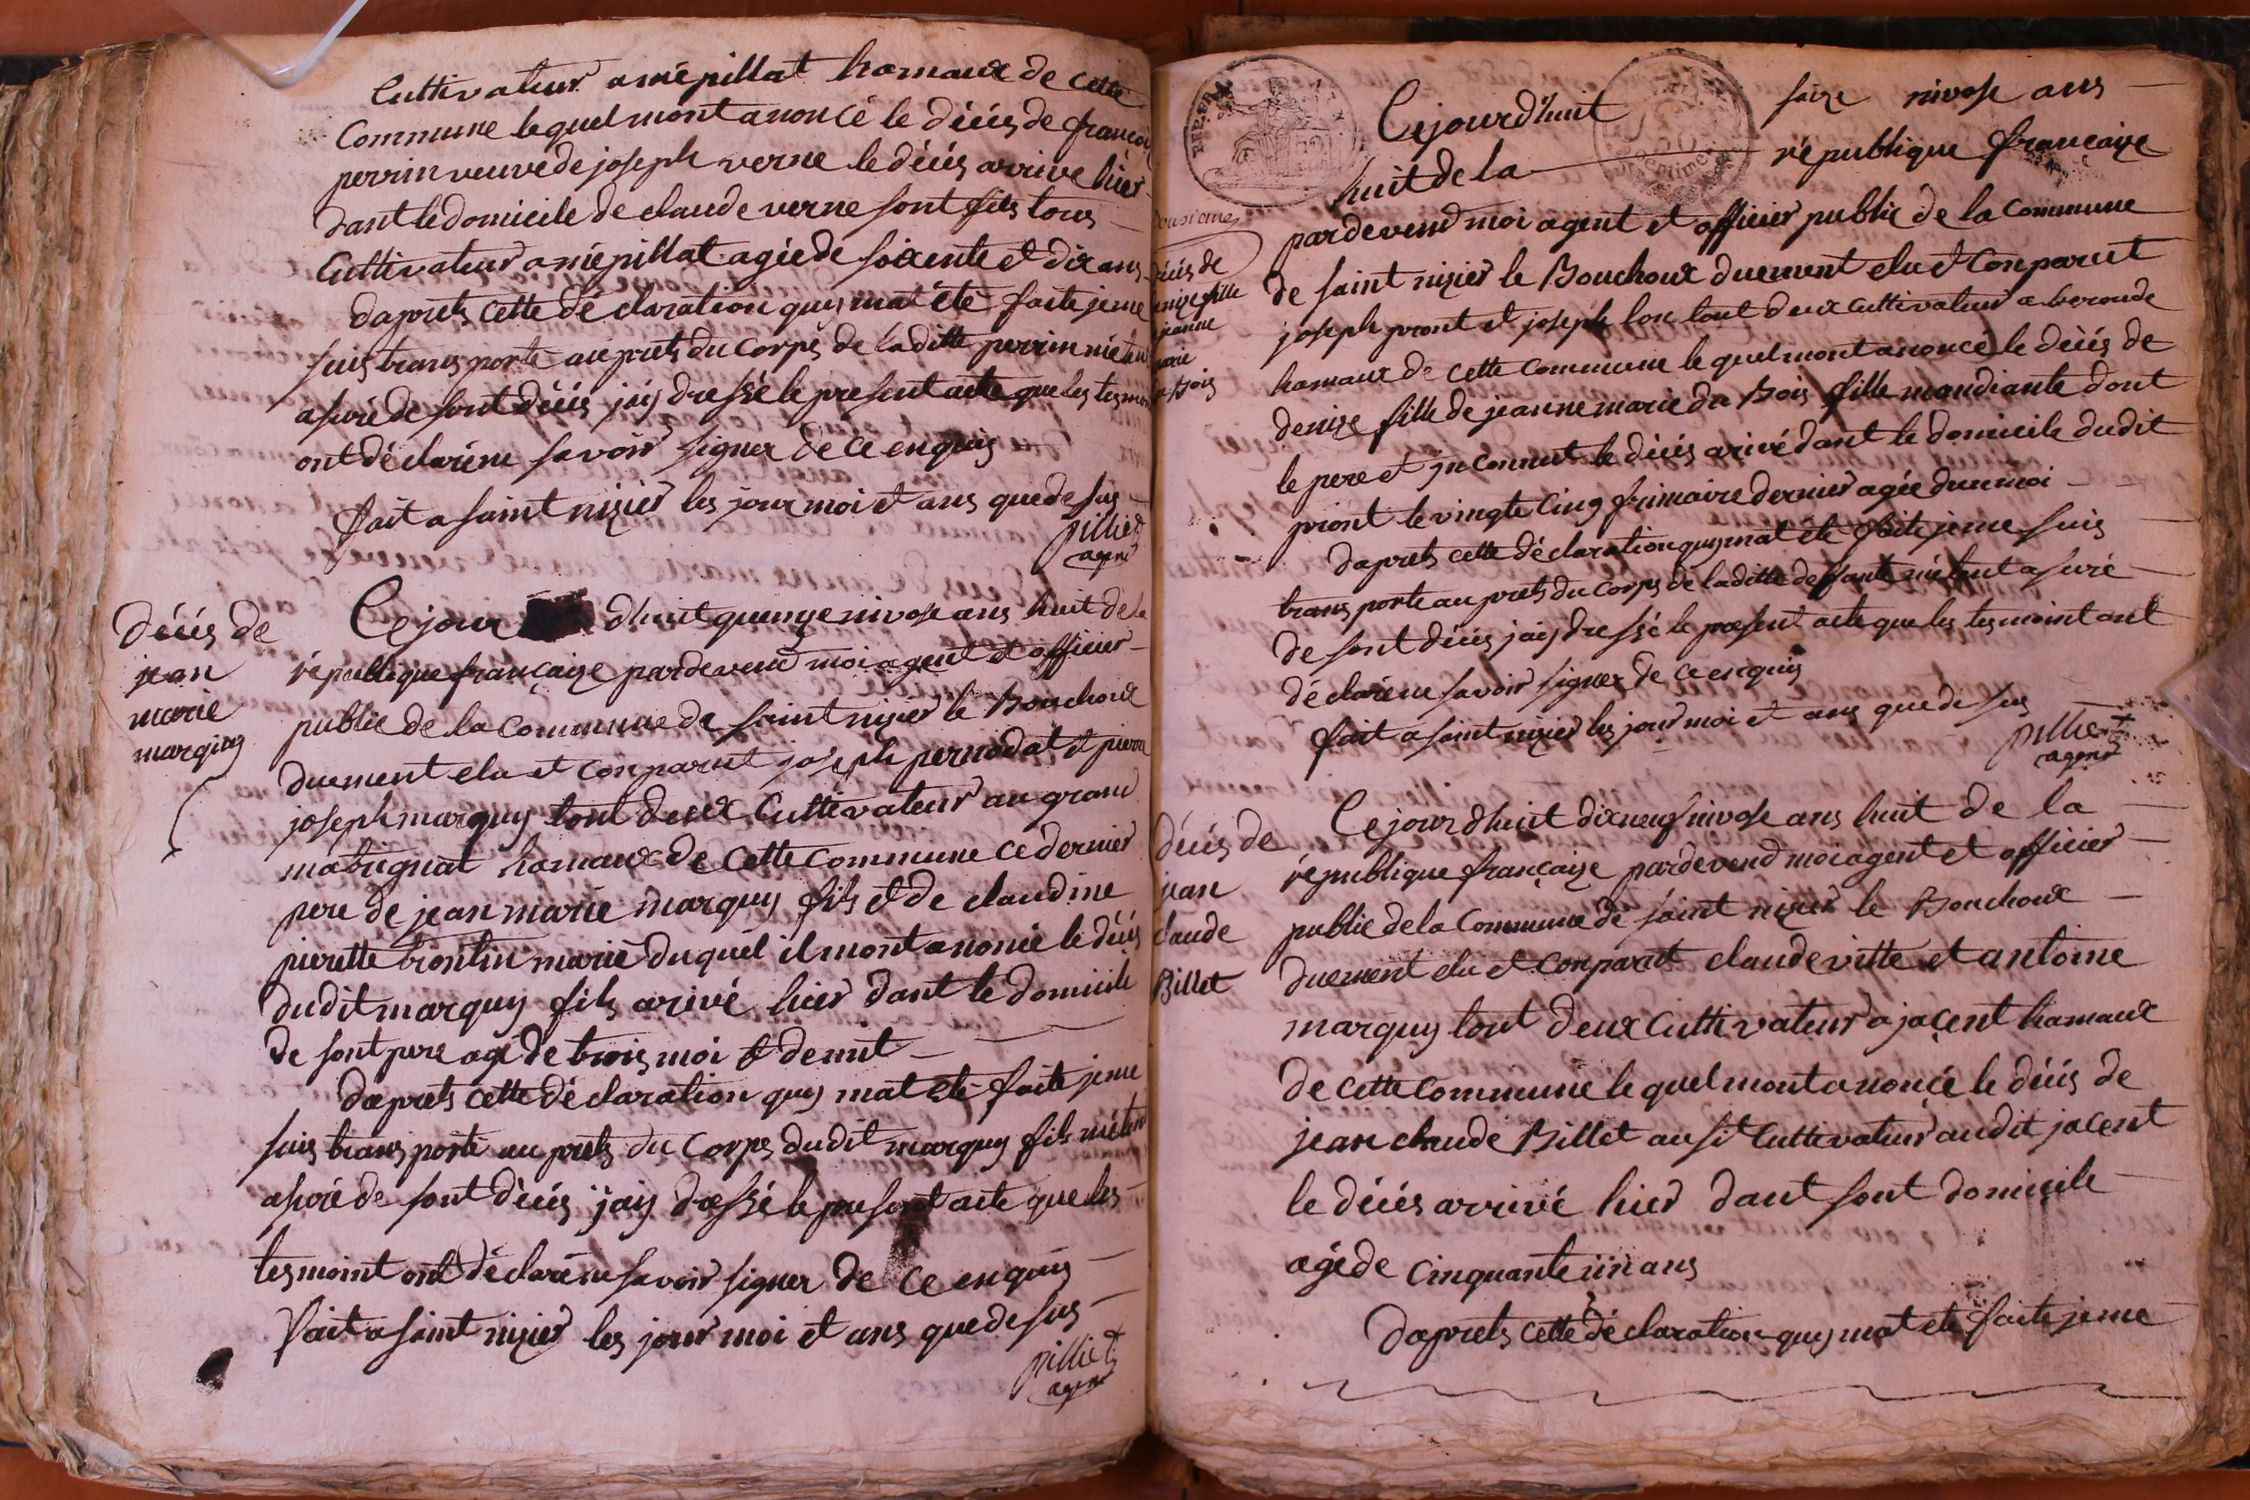 Cuttivateur a mépillat hamaux de cette
Commune le quel mont anoncé le décés de francois
perrin veuve de joseph verne le décés arrive hier
dant le domicile de claude verne sont fils tous
Cuttivateur a mépillat agée de soixente et dix ans
daprets cette déclaration quy mat été faite jeme
suis trans porté au prets du corps de laditte perrin métant
asuré de sont décés jaiy dressé le present acte que les tesmoint
ont déclaréne savoir signer de ce enquis
fait a saint nizier les jour moi et ans que de sus
pilliet
agent
décés de
jean
marie
marquy
Ce jour dhuit quinze nivose ans huit de la
république française pardevend moi agent et officier
public de la Commune de saint nizier le Bouchoux
duement elu et Conparut joseph pernodat et pierre
joseph marquy tout deux Cuttivateur au grand
mabrignat hamaux de Cette commune ce dernier
pere de jean marie marquy fils et de claudine
pierette brontin marié duquel il mont anoncé le décés
dudit marquy fils arivé hier dant le domicile
de sont pere agé de trois moi & demit
daprets cette déclaration quy mat été faite jeme
suis trans porté au prets du Corps dudit marquy fils métant
asuré de sont décés jaiy dressé le present acte que les
tesmoint ont déclaréne savoir signer de ce enquis
fait a saint nizier les jour moi et ans que de sus
pilliet
agent
Cejourdhuit saize nivose ans
huit de la république française
pardevend moi agent et officier public de la Commune
de saint nizier le Bouchoux duement elu et Conparut
joseph piont et joseph lon tout deux Cuttivateur a beroude
hamaux de cette Commune le quel mont anoncé le décés de
denize fille de jeanne marie du Bois fille mandiante dont
le pere et jnconnut le décés arivé dant le domicile dudit
piont le vingte Cinq frimaire dernier agée dun moi
daprets cette déclaration quy mat été faite jeme suis
trans porté au prets du corps de laditte deffante métant asuré
de sont décés jaiy dressé le present acte que les tesmoint ont
déclaréne savoir signer de ce enquis
fait a saint nizier les jour moi et ans que de sus
pilliet
agent
décés de
denize fille
jeanne
marie
du Bois
décés de
jean
claude
Billet
Cejourdhuit dixneuf nivose ans huit de la
république française pardevend moi agent et officier
public de la Commune de saint nizier le Bouchoux
duement elu et Conparut claude vitte et antoine
marquy tout deux Cuttivateur a jaçent hamaux
de cette commune le quel mont anoncé le décés de
jean claude Billet ausit Cuttivateur audit jacent
le décés arrivé hier dant sont domicile
agé de Cinquante un ans
daprets cette déclaration quy mat eté faite jeme